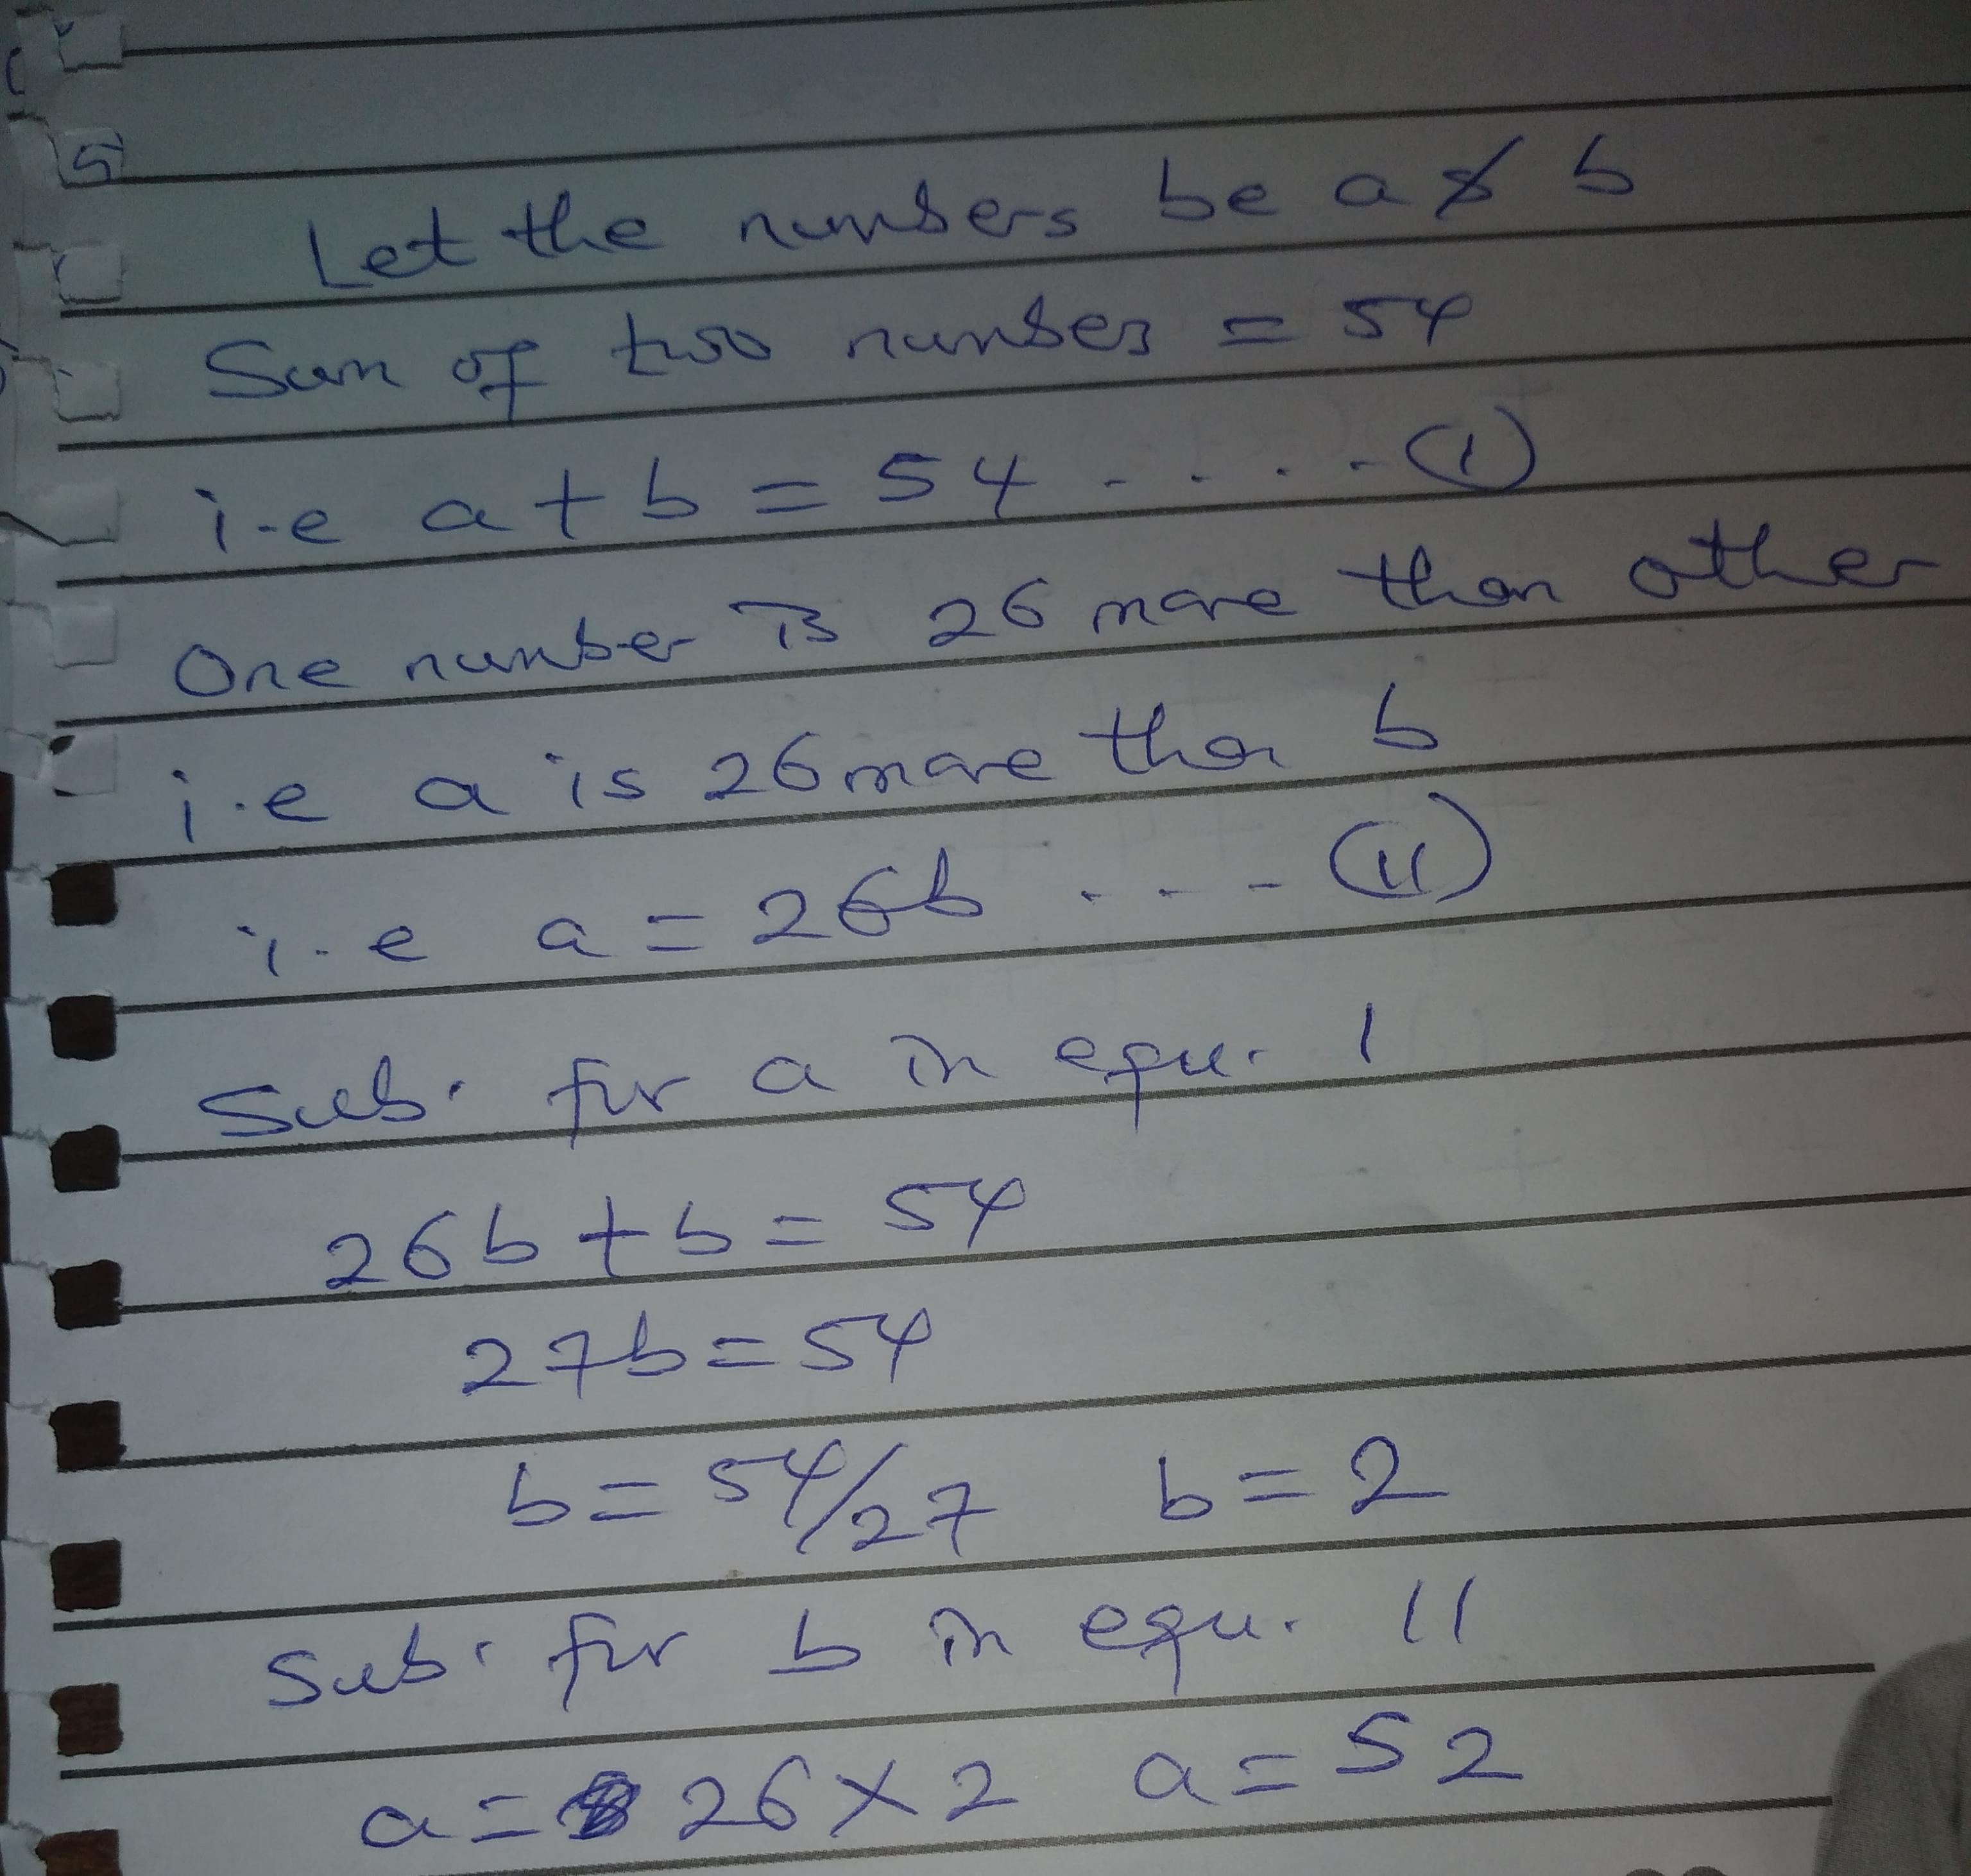 Let the numbers be a & b
Sum of two numbers = 54
i.e a + b = 54 . . . . (I)
One number is 26 more than other
i.e a is 26 more than b
i.e a = 26b . . . (II)
Sub. for a in equ. 1
26b + b = 54
27b = 54
b = 54/27 b = 2
Sub. for b in equ. 11
a = 26 × 2 a = 52